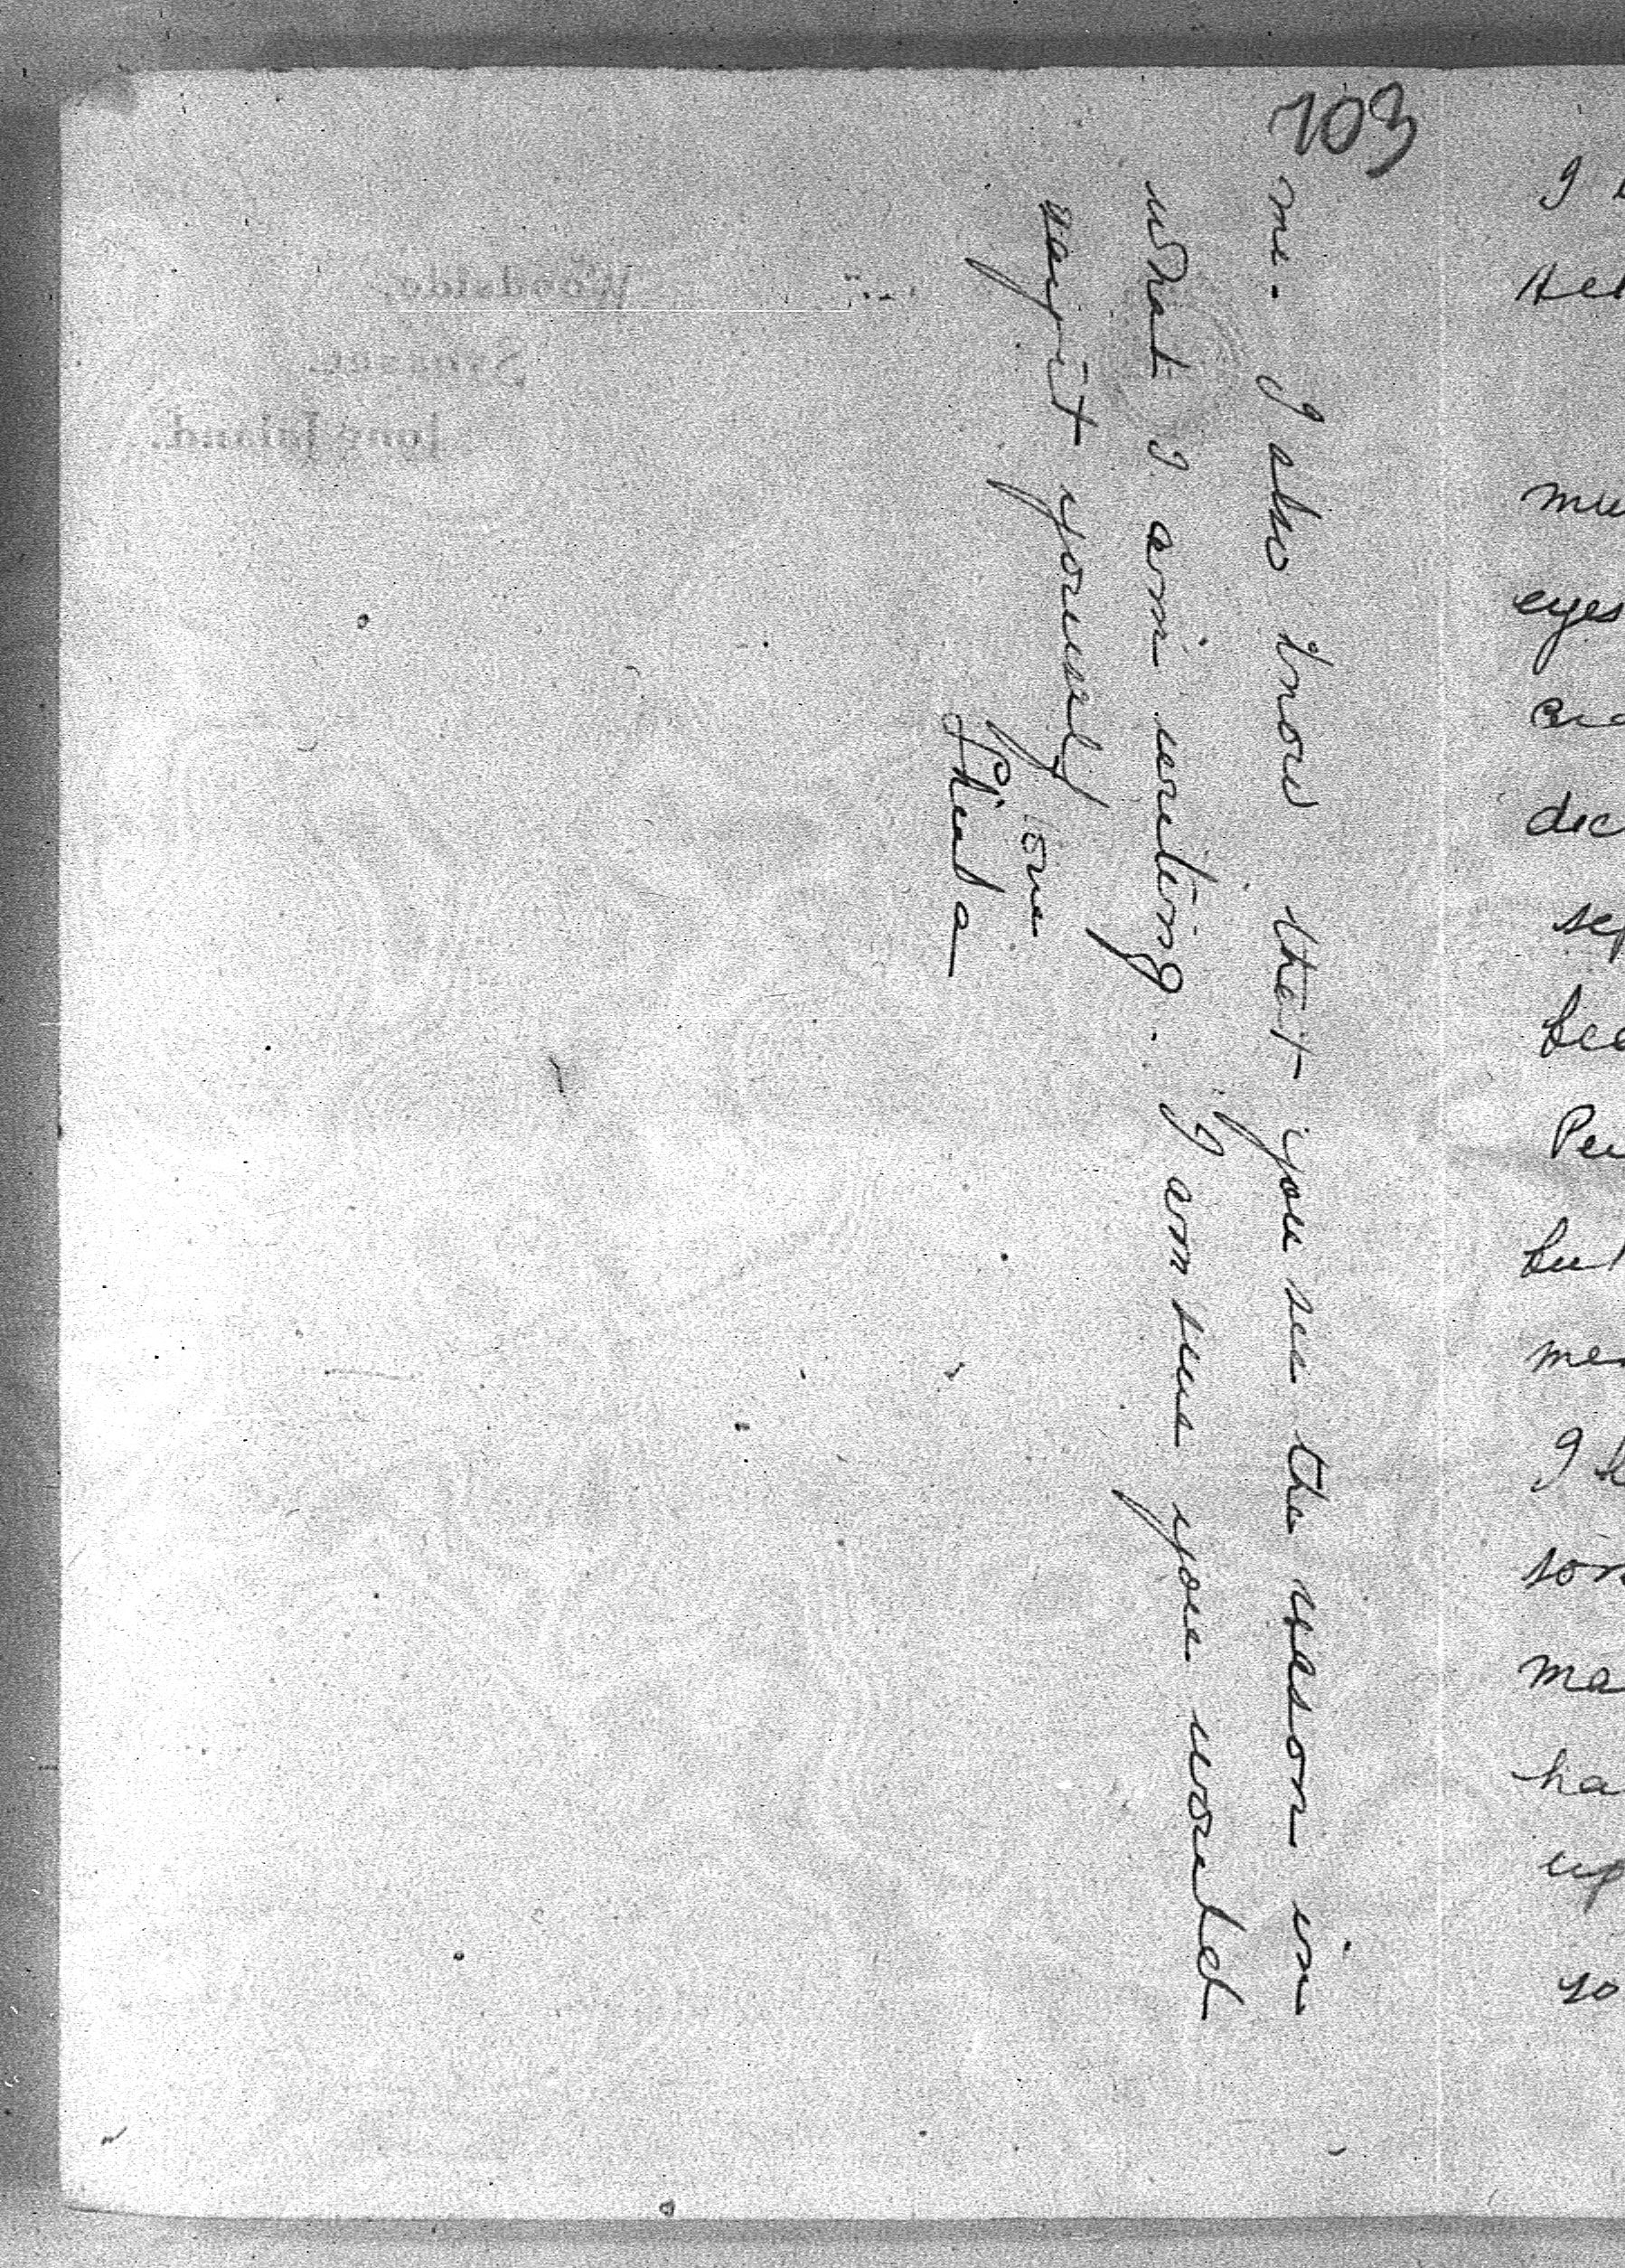 103
me. I also know that you see the reason in
what I am writing. I am sure you would
say it yourself
love
Sheila
Woodside.
Syosset.
Long Island.
I
Hel
mu
eyes
are
dec
sep
bee
Peu
but
me
I h
som
ma
ha
up
so